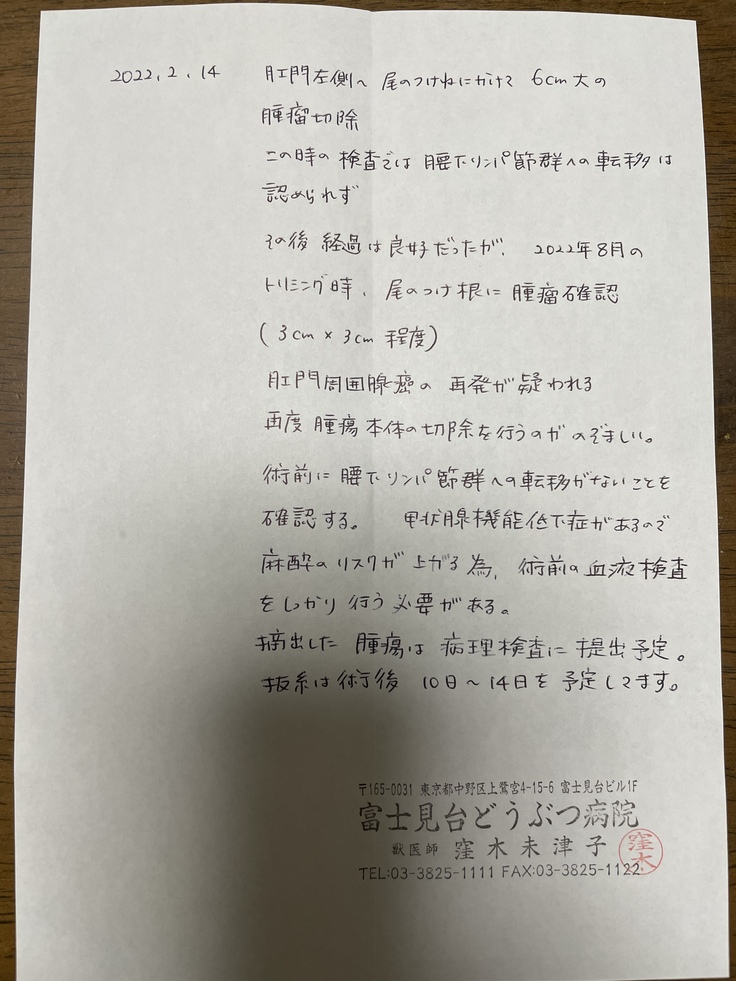 2022.2.14 肛門左側〜尾のつけねにかけて 6cm大の
腫瘤切除
この時の検査では腰下リンパ節群への転移は
認められず
その後 経過は良好だったが、2022年8月の
トリミング時、尾のつけ根に腫瘤確認
(3cm×3cm 程度)
肛門周囲腺癌の 再発が疑われる
再度 腫瘍本体の切除を行うのがのぞましい。
術前に腰下リンパ節群への転移がないことを
確認する。 甲状腺機能低下症があるので
麻酔のリスクが上がる為、術前の血液検査
をしっかり行う必要がある。
摘出した 腫瘍は 病理検査に提出予定。
抜糸は術後 10日〜14日を予定してます。
〒165-0031 東京都中野区上鷺宮4-15-6 富士見台ビル1F
富士見台どうぶつ病院
獣医師 窪木未津子 窪木
TEL:03-3825-1111 FAX:03-3825-1122